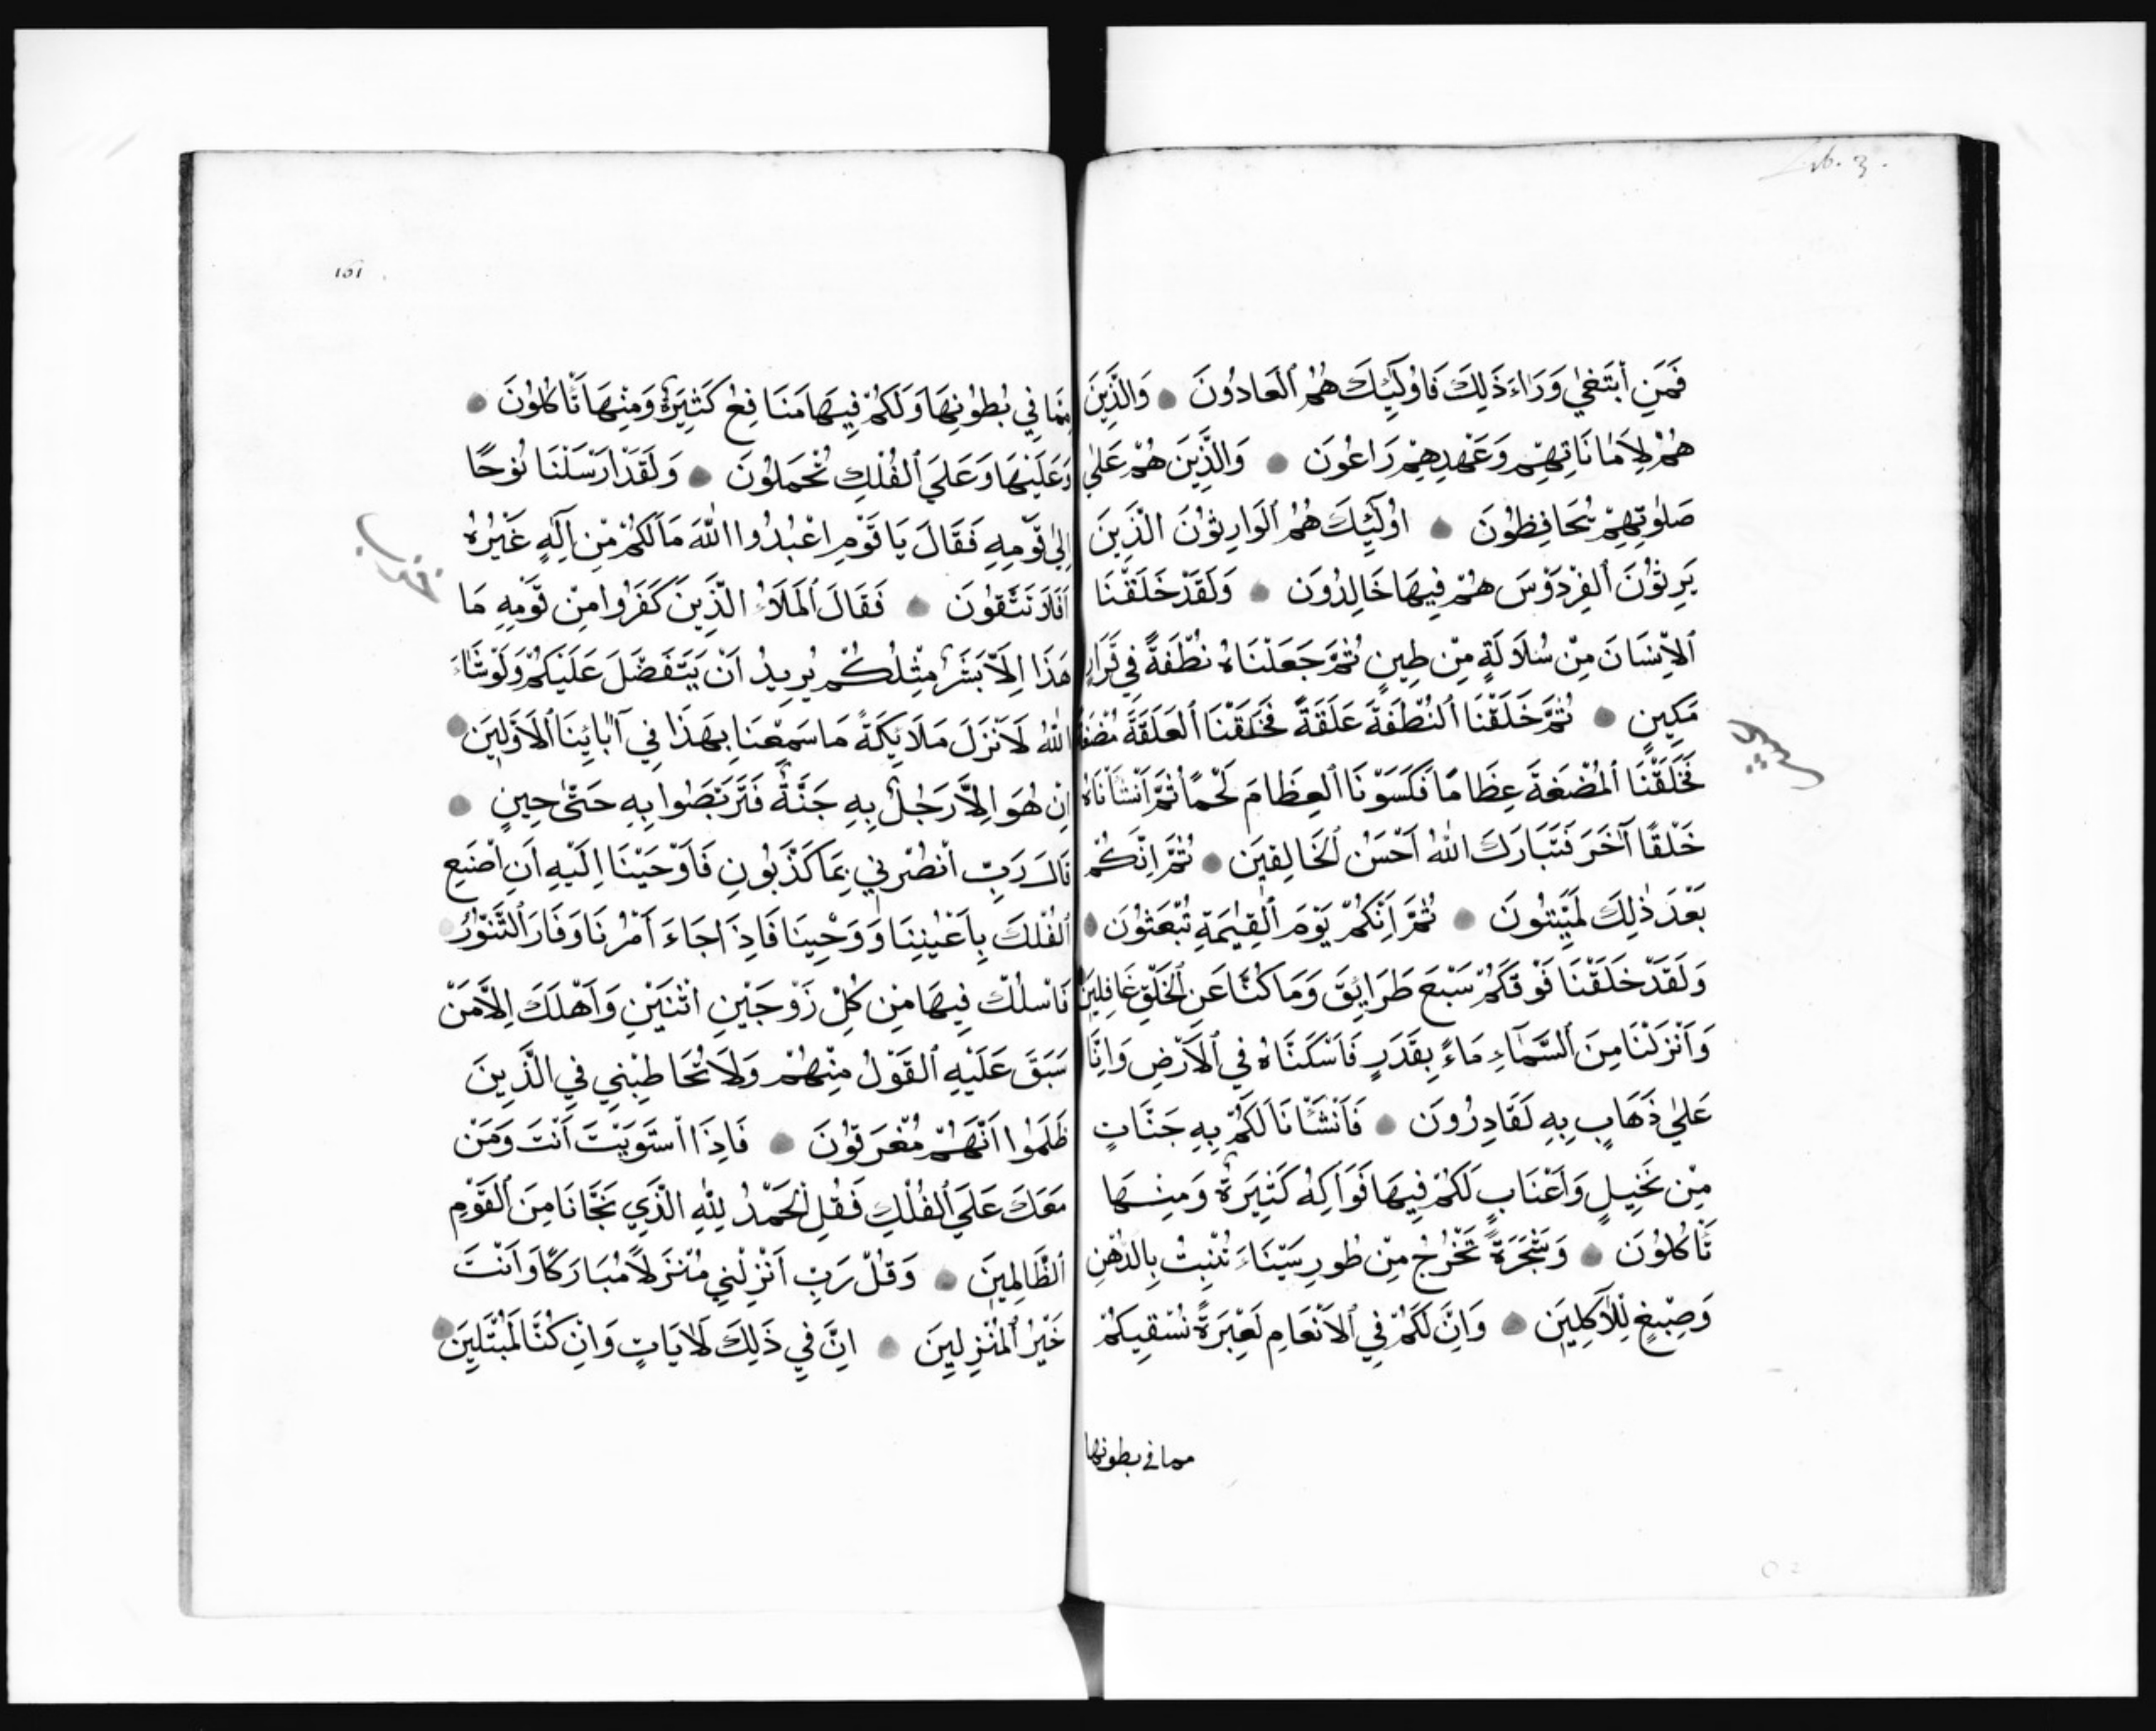 فَمَنِ ابْتَغٰي وَرَاءَ ذَلِكَ فَاُولَٓئِكَ هُمُ ٱلْعَادُونَ وَالَّذِينَ
هُمْ لِاَمَانَاتِهِمْ وَعَهْدِهِمْ رَاعُونَ وَالَّذِينَ هُمْ عَلٰي
صَلوٰتِهِمْ يُحَافِظُونَ اُولَٓئِكَ هُمُ ٱلْوَارِثُونَ الَّذِينَ
يَرِثُونَ ٱلْفِرْدَوْسَ هُمْ فِيهَا خَالِدُونَ وَلَقَدْ خَلَقْنَا
ٱلْاِنْسَانَ مِنْ سُلَالَةٍ مِنْ طِينٍ ثُمَّ جَعَلْنَاهُ نُطْفَةً فِي قَرَارٍ
مَكِينٍ ثُمَّ خَلَقْنَا ٱلنُّطْفَةَ عَلَقَةً فَخَلَقْنَا ٱلْعَلَقَةَ مُضْغَةً
فَخَلَقْنَا ٱلْمُضْغَةَ عِظَامًا فَكَسَوْنَا ٱلْعِظَامَ لَحْمًا ثُمَّ اَنْشَأْنَاهُ
خَلْقًا آخَرَ فَتَبَارَكَ اللّٰهُ اَحْسَنُ ٱلْخَالِقِينَ ثُمَّ اِنَّكُمْ
بَعْدَ ذٰلِكَ لَمَيِّتُونَ ثُمَّ اِنَّكُمْ يَوْمَ ٱلْقِيٰمَةِ تُبْعَثُونَ
وَلَقَدْ خَلَقْنَا فَوْقَكُمْ سَبْعَ طَرَائِقَ وَمَا كُنَّا عَنِ ٱلْخَلْقِ غَافِلِينَ
وَاَنْزَلْنَا مِنَ ٱلسَّمَآءِ مَاءً بِقَدَرٍ فَاَسْكَنَّاهُ فِي ٱلْاَرْضِ وَاِنَّا
عَلٰي ذَهَابٍ بِهِ لَقَادِرُونَ فَاَنْشَأْنَا لَكُمْ بِهِ جَنَّاتٍ
مِنْ نَخِيلٍ وَاَعْنَابٍ لَكُمْ فِيهَا فَوَاكِهُ كَثِيرَةٌ وَمِنْهَا
تَأْكُلُونَ وَشَجَرَةً تَخْرُجُ مِنْ طُورِ سَيْنَاءَ تُنْبِتُ بِالدُّهْنِ
وَصِبْغٍ لِلْاٰكِلِينَ وَاِنَّ لَكُمْ فِي ٱلْاَنْعَامِ لَعِبْرَةً نُسْقِيكُمْ
مما في بطونها
161
مِمَّا فِي بُطُونِهَا وَلَكُمْ فِيهَا مَنَافِعُ كَثِيرَةٌ وَمِنْهَا تَأْكُلُونَ
وَعَلَيْهَا وَعَلَي ٱلْفُلْكِ تُحْمَلُونَ وَلَقَدْ اَرْسَلْنَا نُوحًا
اِلٰي قَوْمِهِ فَقَالَ يَا قَوْمِ اعْبُدُوا اللّٰهَ مَا لَكُمْ مِنْ اِلٰهٍ غَيْرُهُ
اَفَلَا تَتَّقُونَ فَقَالَ ٱلْمَلَأُ الَّذِينَ كَفَرُوا مِنْ قَوْمِهِ مَا
هَذَا اِلَّا بَشَرٌ مِثْلُكُمْ يُرِيدُ اَنْ يَتَفَضَّلَ عَلَيْكُمْ وَلَوْ شَاءَ
اللّٰهُ لَاَنْزَلَ مَلَائِكَةً مَا سَمِعْنَا بِهَذَا فِي آبَائِنَا ٱلْاَوَّلِينَ
اِنْ هُوَ اِلَّا رَجُلٌ بِهِ جِنَّةٌ فَتَرَبَّصُوا بِهِ حَتّٰى حِينٍ
قَالَ رَبِّ انْصُرْنِي بِمَا كَذَّبُونِ فَاَوْحَيْنَا اِلَيْهِ اَنِ اصْنَعِ
ٱلْفُلْكَ بِاَعْيُنِنَا وَوَحْيِنَا فَاِذَا جَاءَ اَمْرُنَا وَفَارَ ٱلتَّنُّورُ
فَاسْلُكْ فِيهَا مِنْ كُلٍّ زَوْجَيْنِ اثْنَيْنِ وَاَهْلَكَ اِلَّا مَنْ
سَبَقَ عَلَيْهِ ٱلْقَوْلُ مِنْهُمْ وَلَا تُخَاطِبْنِي فِي الَّذِينَ
ظَلَمُوا اِنَّهُمْ مُغْرَقُونَ فَاِذَا اسْتَوَيْتَ اَنْتَ وَمَنْ
مَعَكَ عَلَي ٱلْفُلْكِ فَقُلِ ٱلْحَمْدُ لِلّٰهِ الَّذِي نَجَّانَا مِنَ ٱلْقَوْمِ
ٱلظَّالِمِينَ وَقُلْ رَبِّ اَنْزِلْنِي مُنْزَلًا مُبَارَكًا وَاَنْتَ
خَيْرُ ٱلْمُنْزِلِينَ اِنَّ فِي ذَلِكَ لَآيَاتٍ وَاِنْ كُنَّا لَمُبْتَلِينَ